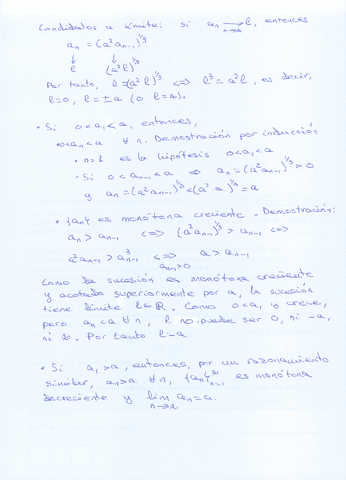 Candidatos a límite: si aₙ ⟶ l, entonces
n→∞
aₙ = (a² aₙ₋₁)^1/3
↓ ↓
l (a² l)^1/3
Por tanto, l = (a² l)^1/3 <=> l³ = a² l, es decir,
l=0, l = ±a (o l=∞).
• Si 0<a₁<a, entonces,
• 0<aₙ<a ∀n. Demostración por inducción
• n=1 es la hipótesis 0<a₁<a
• Si 0<aₙ₋₁<a => aₙ = (a² aₙ₋₁)^1/3 > 0
y aₙ = (a² aₙ₋₁)^1/3 < (a² a)^1/3 = a
• {aₙ} es monótona creciente. Demostración:
aₙ > aₙ₋₁ <=> (a² aₙ₋₁)^1/3 > aₙ₋₁ <=>
a² aₙ₋₁ > aₙ₋₁³ <=> a > aₙ₋₁
aₙ₋₁>0
Como la sucesión es monótona creciente
y acotada superiormente por a, la sucesión
tiene límite l∈ℝ. Como 0<a₁ y crece,
pero aₙ<a ∀n, l no puede ser 0, ni -a,
ni ∞. Por tanto l=a
• Si a₁>a, entonces, por un razonamiento
similar, aₙ>a ∀n, {aₙ}ₙ₌₁^∞ es monótona
decreciente y lim aₙ=a.